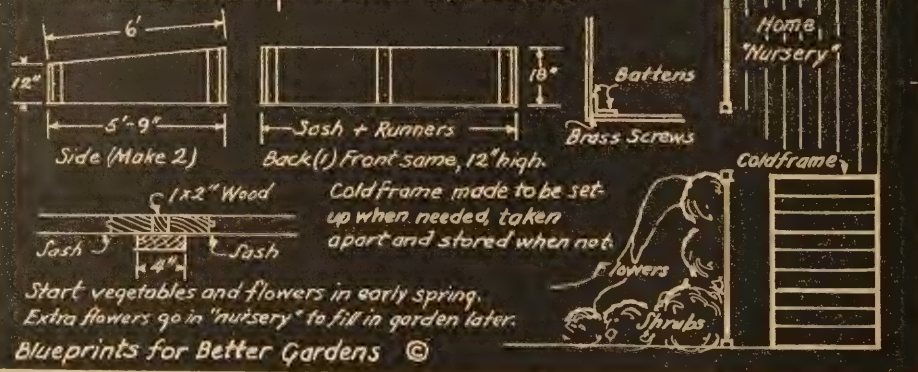 6'
12"
18"
5'-9"
Side (Make 2)
Sash + Runners
Back (1) Front same, 12" high.
Battens
Brass Screws
Home
"Nursery"
Coldframe
1x2" Wood
Sash
Sash
4"
Cold frame made to be set-
up when needed, taken
apart and stored when not.
Flowers
Shrubs
Start vegetables and flowers in early spring.
Extra flowers go in "nursery" to fill in garden later.
Blueprints for Better Gardens ©